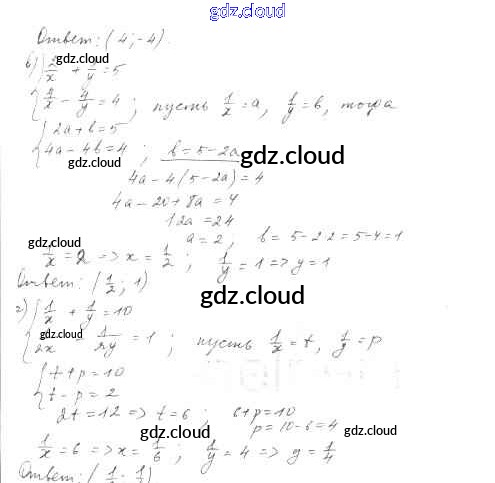 gdz.cloud
gdz.cloud
Ответ: (4; -4).
в) { 2/x + 1/y = 5
4/x - 4/y = 4 ; пусть 1/x = a, 1/y = b, тогда
{ 2a + b = 5
4a - 4b = 4 ; b = 5 - 2a
gdz.cloud
gdz.cloud
4a - 4(5 - 2a) = 4
4a - 20 + 8a = 4
12a = 24
a = 2, b = 5 - 2·2 = 5 - 4 = 1
gdz.cloud
gdz.cloud
1/x = 2 => x = 1/2 ; 1/y = 1 => y = 1
Ответ: (1/2; 1)
gdz.cloud
г) { 1/x + 1/y = 10
1/2x - 1/2y = 1 ; пусть 1/x = t, 1/y = p
gdz.cloud
gdz.cloud
{ t + p = 10
t - p = 2
2t = 12 => t = 6 ; 6 + p = 10
p = 10 - 6 = 4
gdz.cloud
gdz.cloud
1/x = 6 => x = 1/6 ; 1/y = 4 => y = 1/4
Ответ: (1/6; 1/4)